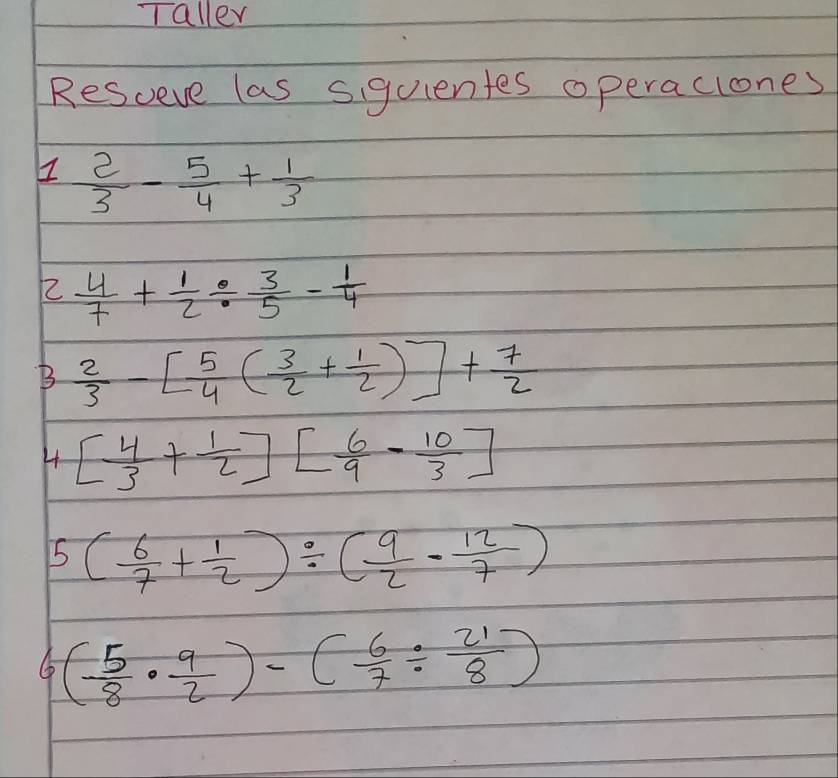 Taller
Resueve las siguientes operaciones
1 2/3 - 5/4 + 1/3
2 4/7 + 1/2 ÷ 3/5 - 1/4
3 2/3 - [5/4 (3/2 + 1/2)] + 7/2
4 [4/3 + 1/2] [6/9 - 10/3]
5 (6/7 + 1/2) ÷ (9/2 - 12/7)
6 (5/8 · 9/2) - (6/7 ÷ 21/8)